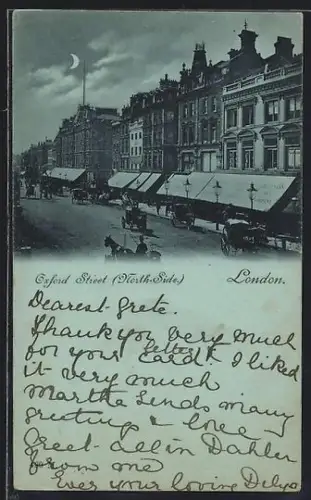 Oxford Street (North-Side.)
London.
Dearest Grete.
Thank you very much
for your letter &
card. I liked
it very much
Martha sends many
greetings & love
Greet all in Dahler
from me
Ever your loving